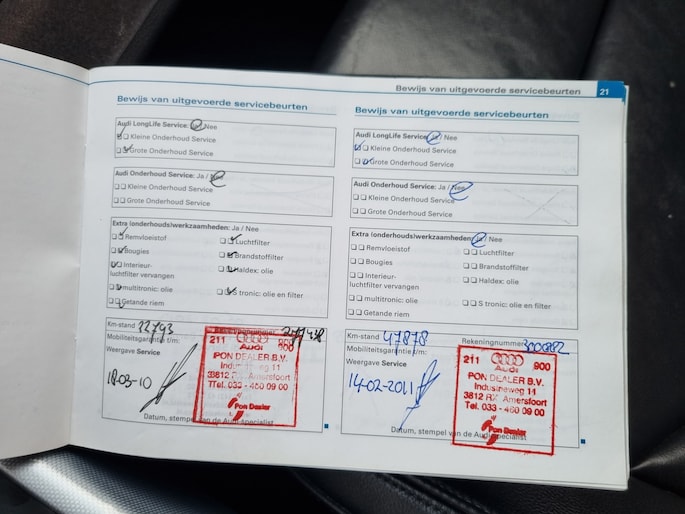 Bewijs van uitgevoerde servicebeurten 21
Bewijs van uitgevoerde servicebeurten
Audi LongLife Service: Ja / Nee
Kleine Onderhoud Service
Grote Onderhoud Service
Audi Onderhoud Service: Ja / Nee
Kleine Onderhoud Service
Grote Onderhoud Service
Extra (onderhouds)werkzaamheden: Ja / Nee
Remvloeistof
Luchtfilter
Bougies
Brandstoffilter
Interieur-
luchtfilter vervangen
Haldex: olie
multitronic: olie
S tronic: olie en filter
Getande riem
Km-stand 22793
Mobiliteitsgarantie t/m:
Weergave Service
211 Audi 900
PON DEALER B.V.
Industrieweg 11
3812 RX Amersfoort
Tel. 033 - 460 09 00
Pon Dealer
Datum, stempel van de Audi-specialist
Bewijs van uitgevoerde servicebeurten
Audi LongLife Service: Ja / Nee
Kleine Onderhoud Service
Grote Onderhoud Service
Audi Onderhoud Service: Ja / Nee
Kleine Onderhoud Service
Grote Onderhoud Service
Extra (onderhouds)werkzaamheden: Ja / Nee
Remvloeistof
Luchtfilter
Bougies
Brandstoffilter
Interieur-
luchtfilter vervangen
Haldex: olie
multitronic: olie
S tronic: olie en filter
Getande riem
Km-stand 47878
Rekeningnummer
Mobiliteitsgarantie t/m:
Weergave Service
14-02-2011
211 Audi 900
PON DEALER B.V.
Industrieweg 11
3812 RX Amersfoort
Tel. 033 - 460 09 00
Pon Dealer
Datum, stempel van de Audi-specialist